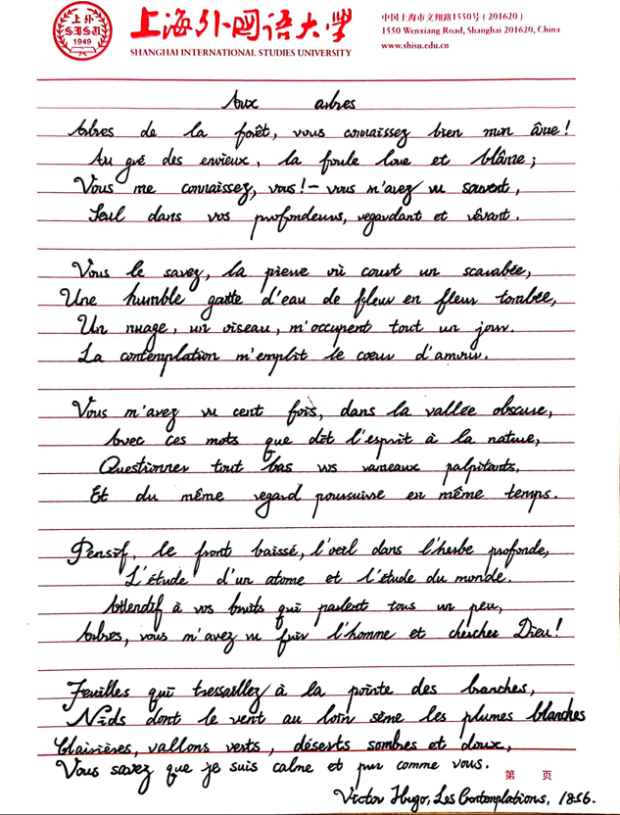 上外
SISU
1949
上海外国语大学
SHANGHAI INTERNATIONAL STUDIES UNIVERSITY
中国上海市文翔路1550号(201620)
1550 Wenxiang Road, Shanghai 201620, China
www.shisu.edu.cn
Aux arbres
Arbres de la forêt, vous connaissez bien mon âme!
Au gré des envieux, la foule loue et blâme;
Vous me connaissez, vous! – vous m'avez vu souvent,
Seul dans vos profondeurs, regardant et rêvant.
Vous le savez, la pierre où court un scarabée,
Une humble goutte d'eau de fleur en fleur tombée,
Un nuage, un oiseau, m'occupent tout un jour.
La contemplation m'emplit le coeur d'amour.
Vous m'avez vu cent fois, dans la vallée obscure,
Avec ces mots que dit l'esprit à la nature,
Questionner tout bas vos rameaux palpitants,
Et du même regard poursuivre en même temps.
Pensif, le front baissé, l'oeil dans l'herbe profonde,
L'étude d'un atome et l'étude du monde.
Attentif à vos bruits qui parlent tous un peu,
Arbres, vous m'avez vu fuir l'homme et chercher Dieu!
Feuilles qui tressaillez à la pointe des branches,
Nids dont le vent au loin sème les plumes blanches
Clairières, vallons verts, déserts sombres et doux,
Vous savez que je suis calme et pur comme vous.
第 页
Victor Hugo, Les Contemplations, 1856.